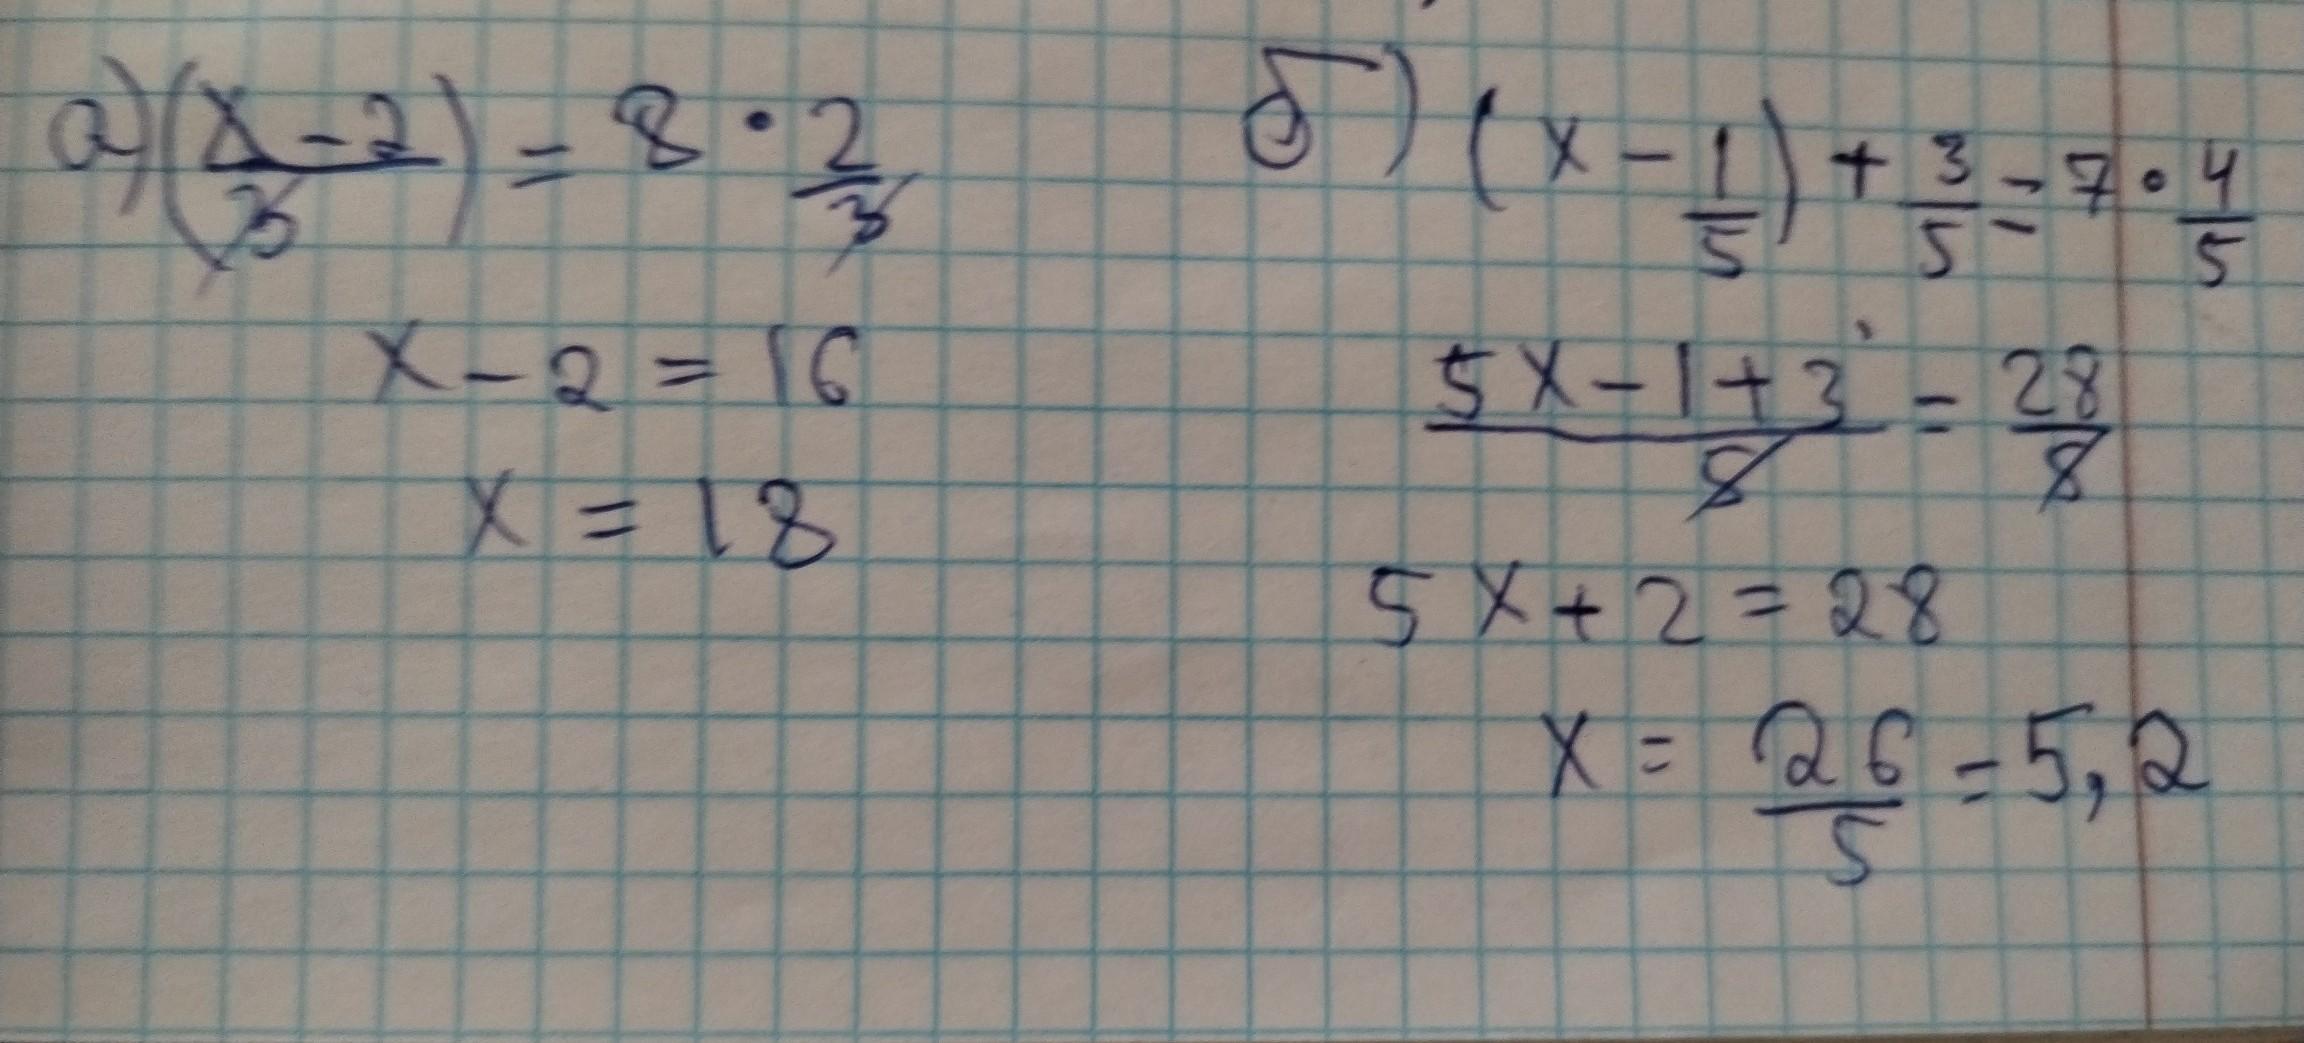 а) (x-2)/3 = 8 · 2/3
x - 2 = 16
x = 18
б) (x - 1/5) + 3/5 = 7 · 4/5
(5x - 1 + 3)/5 = 28/5
5x + 2 = 28
x = 26/5 = 5,2